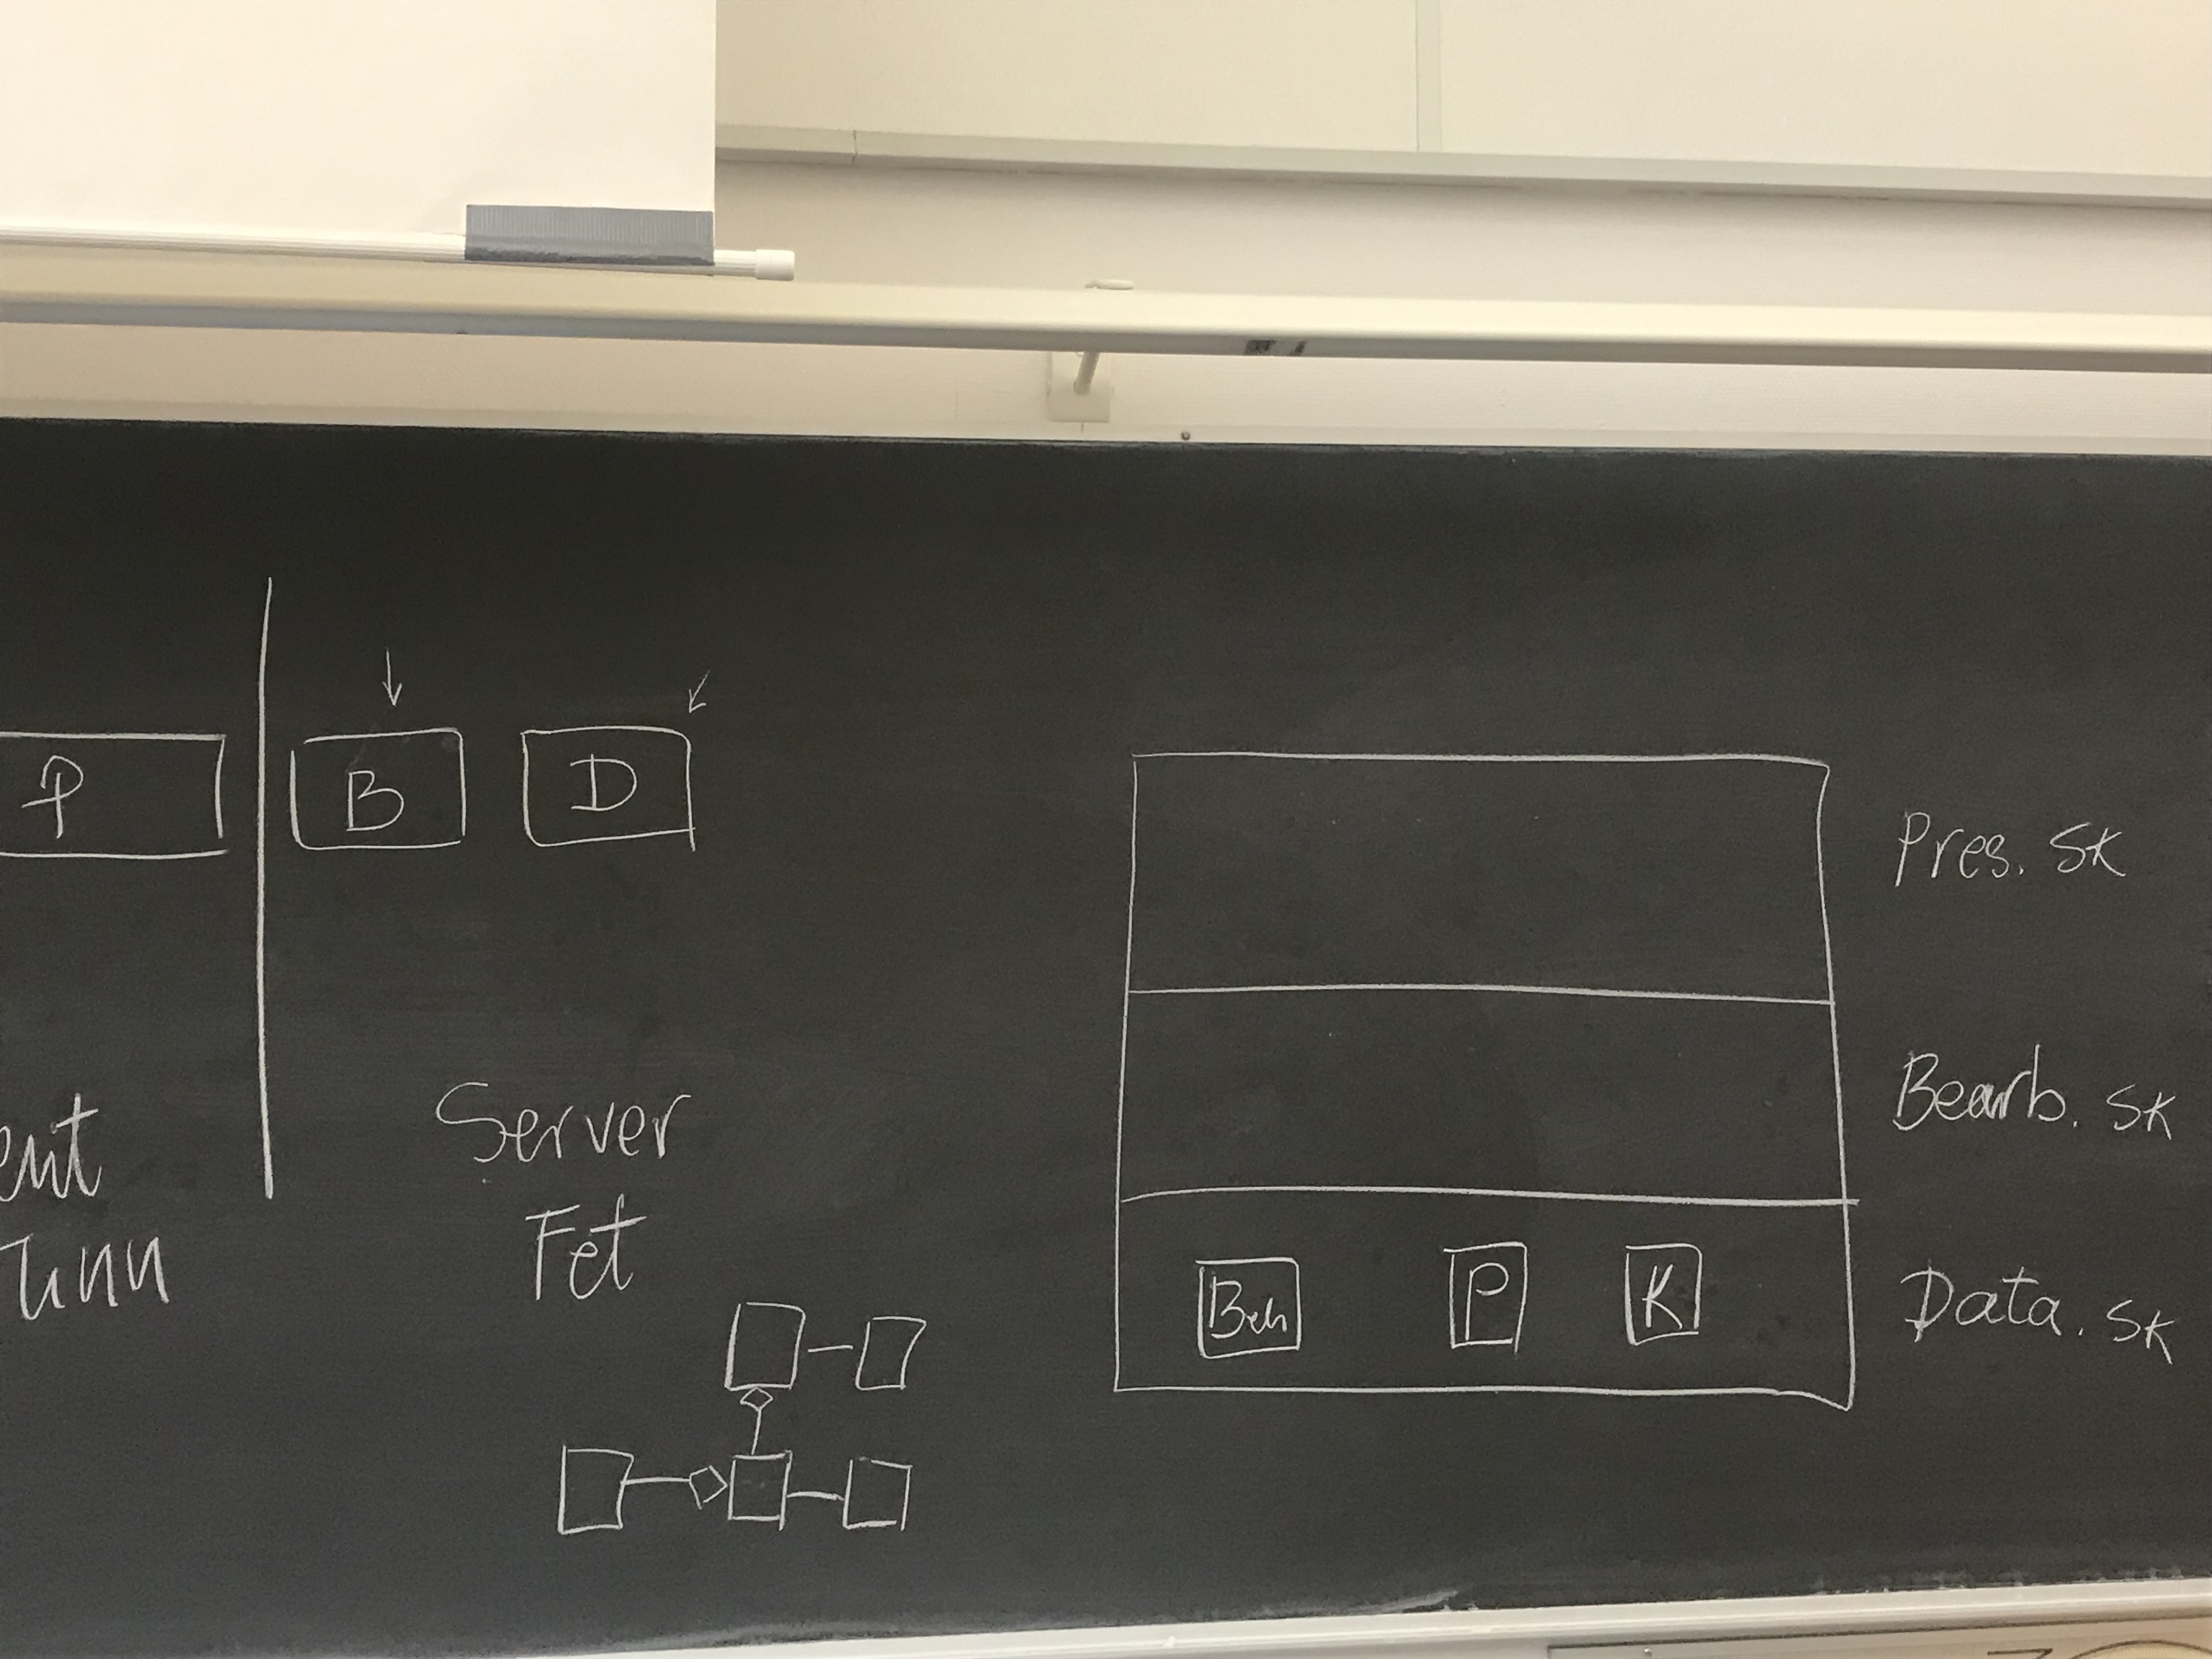 P
B
D
Server
Fet
Pres. sk
Bearb. sk
Beh
P
K
Data. sk